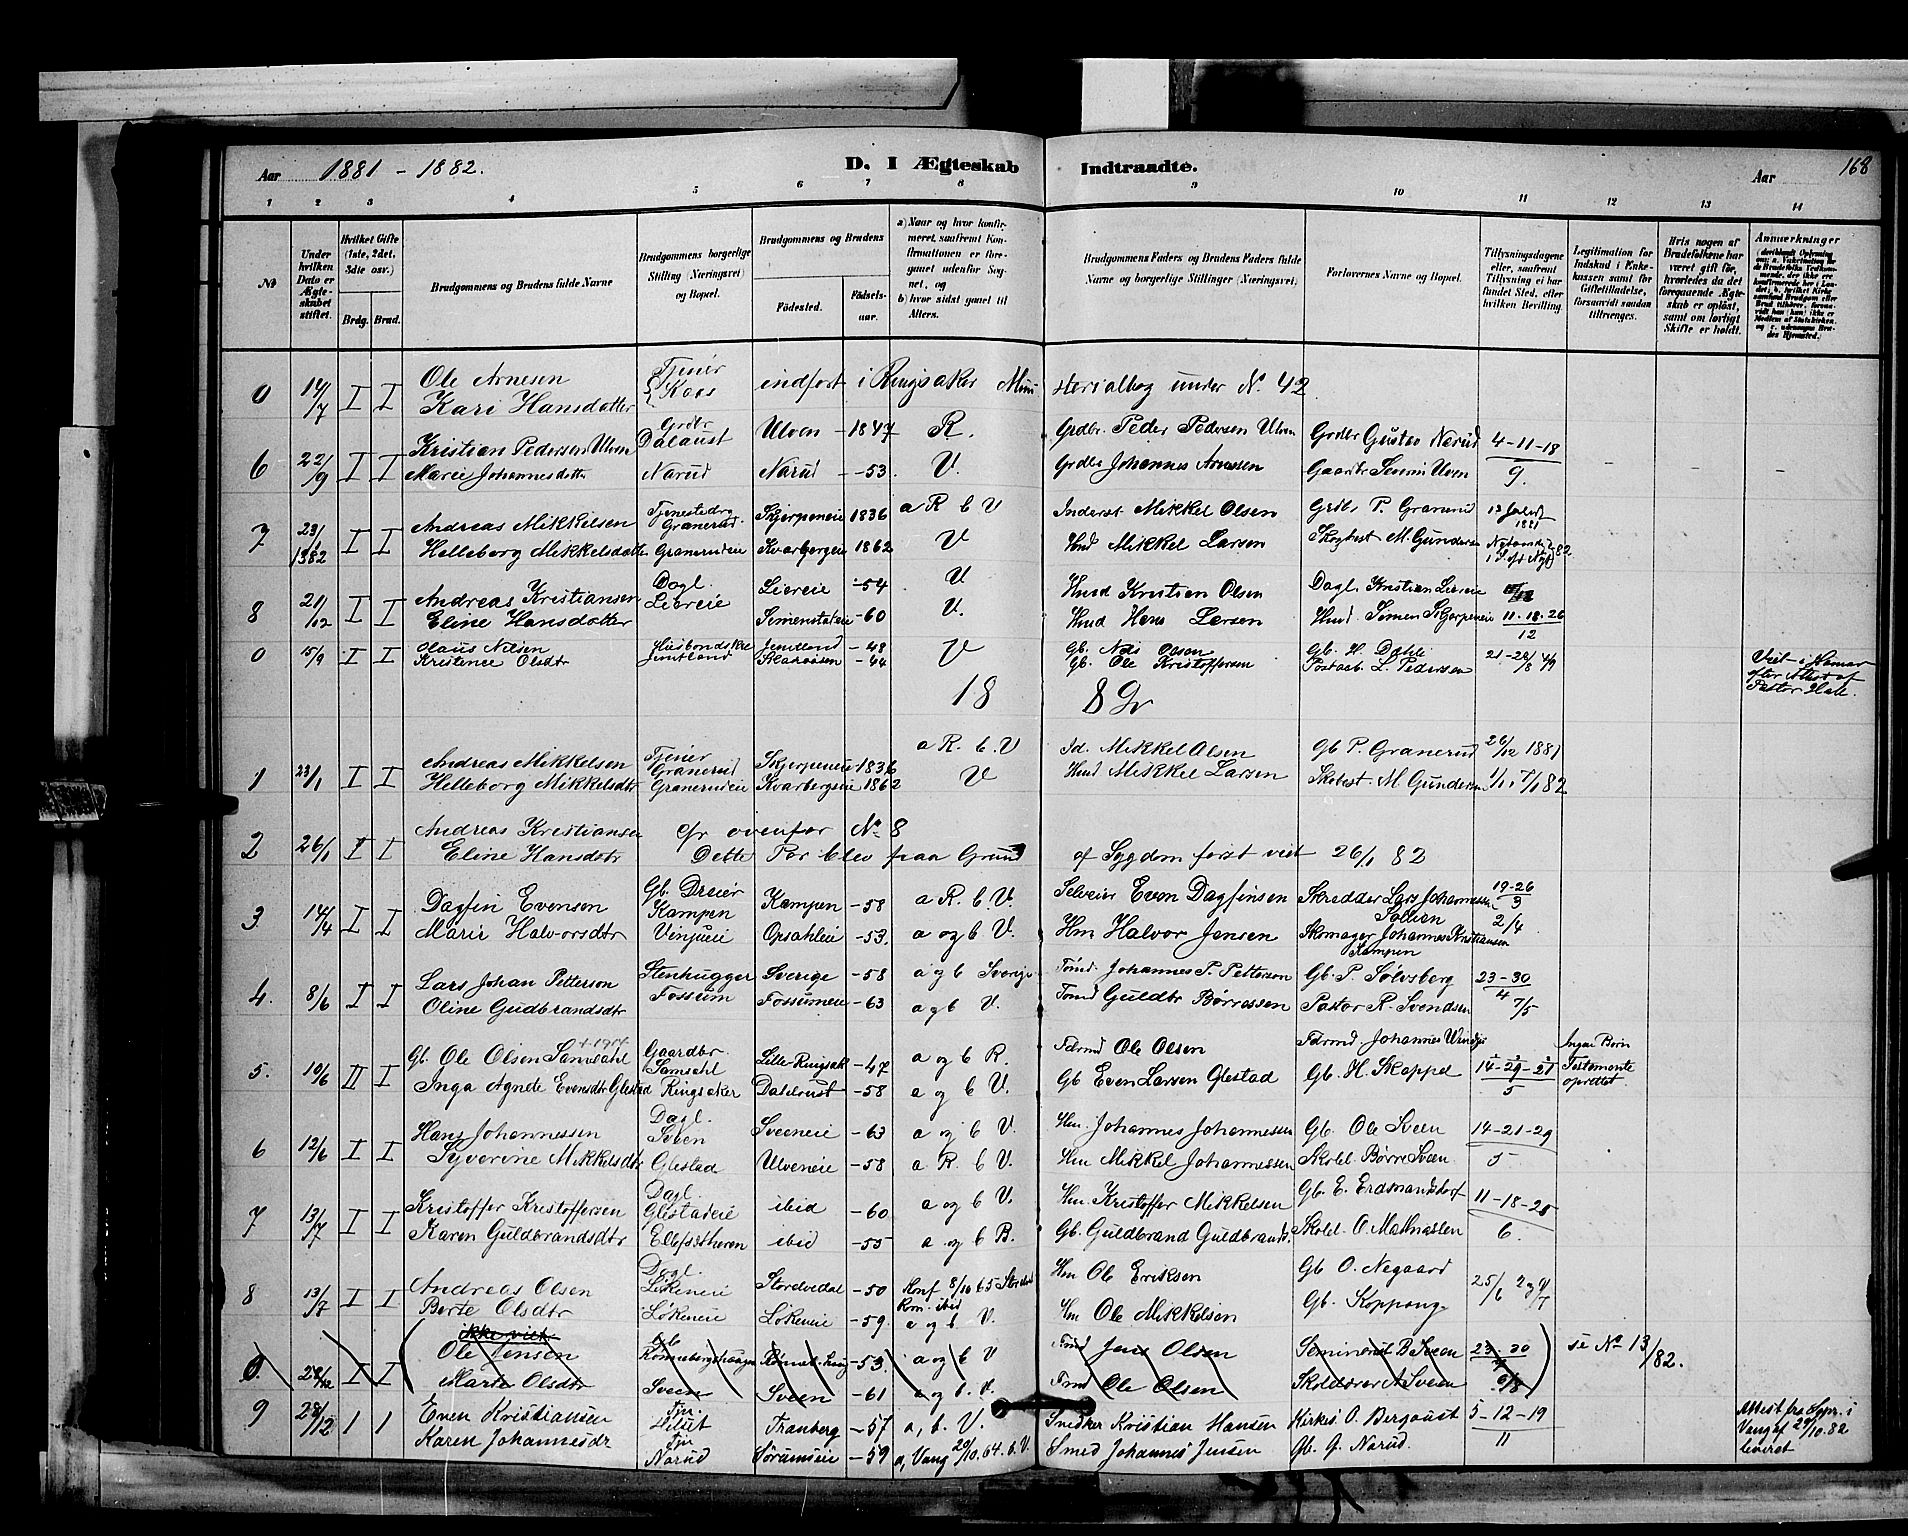 Aar 1881 - 1882. D. I Ægteskab Indtraadte. Aar 168
1 2 3 4 5 6 7 8 9 10 11 12 13 14
№ Under hvilken Dato er Ægteskabet stiftet. Hvilket Gifte (1ste, 2det, 3die osv.) Brdg. Brud. Brudgommens og Brudens fulde Navne Brudgommens borgerlige Stilling (Næringsvei) og Bopæl. Brudgommens og Brudens Fødested. Fødselsaar. a) Naar og hvor konfirmeret, saafremt Konfirmationen er foregaaet udenfor Sognet, og b) hvor sidst gaaet til Alters.
Brudgommens Faders og Brudens Faders fulde Navne og borgerlige Stillinger (Næringsvei). Forlovernes Navne og Bopæl. Tillysningsdagene eller, saafremt Tillysning ei har fundet Sted, efter hvilken Bevilling Legitimation for Indskud i Enkekassen samt for Giftetilladelse, forsaavidt saadan tiltrænges. Hvis nogen af Brudefolkene har været gift før, hvorledes da det foregaaende Ægteskab er opløst, samt om lovligt Skifte er holdt. Anmærkninger
0 14/7 I I Ole Arnesen Tjener Koos indført i Ringsaker Ministerialbog under N. 42
Kari Hansdatter
6 22/9 I I Kristian Pedersen Ulven Grdbr Dalaust Ulven - 1847 R. Grdbr. Peder Pedersen Ulven Grdbr Gustav Narud 4-11-18
Marie Johannesdatter Narud Narud - 53. V. Grdbr Johannes Arnesen Gaardbr Severin Ulven 9.
7 23/1 1882 I I Andreas Mikkelsen Tjenestedrg Granerud. Skjerpeneie 1836 a R b V Inderst Mikkel Olsen Grdbr P. Granerud 1881
Helleborg Mikkelsdatter Granerudeie Kvarbergeie 1862 V Hmd Mikkel Larsen M. Gundersen 82
8 21/12 I I Andreas Kristiansen Dagl. Liereie Liereie -54 V Hmd Kristian Olsen Dagl. Kristian Liereie
Eline Hansdatter Simenstadeie -60 V. Hmd Hans Larsen Hmd Simen Skjerpeneie 11-18-26 12
0 15/9 I I Olaus Nilsen Jemtland Jemtland - 48 V Gb. Nils Olsen Gb. H. Dahle
Kristence Olsdtr - 44 Gb. Ole Kristoffersen L. Pedersen
Viet i Hamar efter Attest af Pastor
18 8 Gr
1 23/1 I I Andreas Mikkelsen Tjener Granerud Skjerpeneie 1836 a R. b. V Id. Mikkel Olsen Gb P. Granerud 26/12 1881
Helleborg Mikkelsdtr Granerudeie Kvarbergeie 1862 V Hmd Mikkel Larsen Skobest M. Gundersen 1/1, 7/1 82
2 26/1 I I Andreas Kristiansen cfr ovenfor № 8
Eline Hansdatr Dette Par blev paa Grund af Sygdom først viet 26/1 82
3 14/4 I I Dagfin Evensen Gb. Dreier Kampen Kampen - 58 a R. b. V. Selveier Even Dagfinsen Skredder Lars Johannessen 19-26 3
Marie Halvorsdtr Vinjueie Opsahleie - 53. a og b V. Hm Halvor Jensen Skomager Johannes Kristiansen Kampen 2/4
4. 8/6 I I Lars Johan Petterson Stenhugger Sverige - 58 a og b Sverige Tømd. Johannes P. Petterson Gb. P. Sølvsberg 23-30 4
Oline Gudbrandsdtr Fossum Fossumeie - 63 a og b V. Tømd Guldbr Børressen Pastor R. Svendsen 7/5
5. 10/6 II I Gb. Ole Olsen Samdahl Gaardbr. Samdahl Lille-Ringsak -47 a og b R. Ole Olsen Johannes
Inga Agnete Evensdtr Glestad Ringsaker Dalebrust -58 a og b V. Gb Even Larsen Glestad Gb. H. Skappel 14-29-21 5 Ingen Børn Testamente oprettet.
6 12/6 I I Hans Johannessen Dagl. Sveen Sveeneie -63 a og b V. Hm. Johannes Johannessen Gb. Ole Sveen 14-21-29
Syverine Mikkelsdtr Glestad Ulveneie -58 a R. b V. Hm Mikkel Johannessen Skolel. Børre Sveen 5
7 13/7 I I Kristoffer Kristoffersen Dagl. Glestadeie ibid -60 a og b V. Hm. Kristoffer Mikkelsen Gb. E. Erdmandsdorf 11-18-25
Karen Guldbrandsdtr ibid -55 a og b B. Gb. Guldbrand Guldbrands. Skolel. O. Mathiassen 6.
8 13/7 I I Andreas Olsen Dagl. Løkeneie Storelvedal -50 Konf 8/10 65 Hm Ole Eriksen Gb O. Negaard 25/6
Berte Olsdtr Løkeneie Løkeneie -59. a og b V. Hm Ole Mikkelsen Gb. Koppang
ikke viet
0. I I Ole Jensen -53. a og b V Jens Olsen Seminarist B. Sveen 23-30 se № 13/82.
Marte Olsdtr Sveen Sveen -61 a og b. V. Ole Olsen Skolelærer Sveen 6/8
9 28/12 1 1 Even Kristiansen Tjn. Tranberg -57 a, b. V. Snedker Kristian Hansen Kirkes. O. Bergaust 5-12-19
Karen Johannesdr Tjn Narud -59 a, Vang 20/10. 64. b. V. Smed Johannes Jensen Gb. G. Narud. 11
Attest fra Spr. i Vang af 29/10 82 leveret